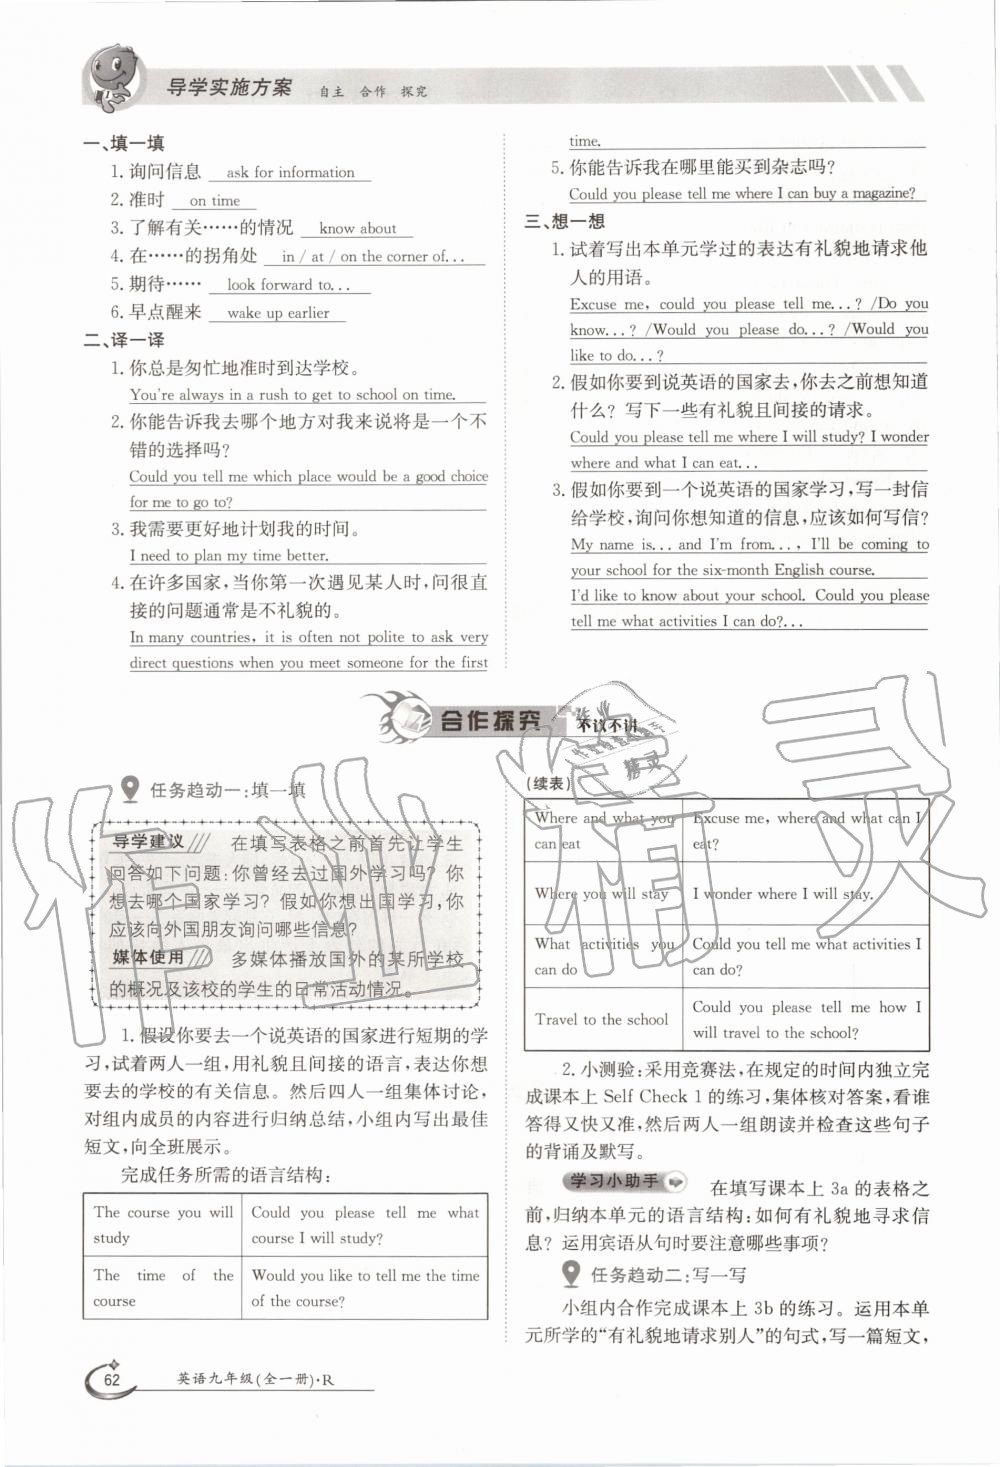 导学实施方案 自主 合作 探究
一、填一填
1. 询问信息 ask for information
2. 准时 on time
3. 了解有关……的情况 know about
4. 在……的拐角处 in / at / on the corner of...
5. 期待…… look forward to...
6. 早点醒来 wake up earlier
二、译一译
1. 你总是匆忙地准时到达学校。
You're always in a rush to get to school on time.
2. 你能告诉我去哪个地方对我来说将是一个不
错的选择吗?
Could you tell me which place would be a good choice
for me to go to?
3. 我需要更好地计划我的时间。
I need to plan my time better.
4. 在许多国家,当你第一次遇见某人时,问很直
接的问题通常是不礼貌的。
In many countries, it is often not polite to ask very
direct questions when you meet someone for the first
time.
5. 你能告诉我在哪里能买到杂志吗?
Could you please tell me where I can buy a magazine?
三、想一想
1. 试着写出本单元学过的表达有礼貌地请求他
人的用语。
Excuse me, could you please tell me...? /Do you
know...? /Would you please do...? /Would you
like to do...?
2. 假如你要到说英语的国家去,你去之前想知道
什么? 写下一些有礼貌且间接的请求。
Could you please tell me where I will study? I wonder
where and what I can eat...
3. 假如你要到一个说英语的国家学习,写一封信
给学校,询问你想知道的信息,应该如何写信?
My name is... and I'm from..., I'll be coming to
your school for the six-month English course.
I'd like to know about your school. Could you please
tell me what activities I can do?...
合作探究 不议不讲
任务趋动一:填一填
导学建议 在填写表格之前首先让学生
回答如下问题:你曾经去过国外学习吗? 你
想去哪个国家学习? 假如你想出国学习,你
应该向外国朋友询问哪些信息?
媒体使用 多媒体播放国外的某所学校
的概况及该校的学生的日常活动情况。
1. 假设你要去一个说英语的国家进行短期的学
习,试着两人一组,用礼貌且间接的语言,表达你想
要去的学校的有关信息。然后四人一组集体讨论,
对组内成员的内容进行归纳总结,小组内写出最佳
短文,向全班展示。
完成任务所需的语言结构:
The course you will Could you please tell me what
study course I will study?
The time of the Would you like to tell me the time
course of the course?
(续表)
Where and what you Excuse me, where and what can I
can eat eat?
Where you will stay I wonder where I will stay.
What activities you Could you tell me what activities I
can do can do?
Travel to the school Could you please tell me how I
will travel to the school?
2. 小测验:采用竞赛法,在规定的时间内独立完
成课本上 Self Check 1 的练习,集体核对答案,看谁
答得又快又准,然后两人一组朗读并检查这些句子
的背诵及默写。
学习小助手 在填写课本上 3a 的表格之
前,归纳本单元的语言结构:如何有礼貌地寻求信
息? 运用宾语从句时要注意哪些事项?
任务趋动二:写一写
小组内合作完成课本上 3b 的练习。运用本单
元所学的“有礼貌地请求别人”的句式,写一篇短文,
62 英语九年级(全一册)·R
作业精灵